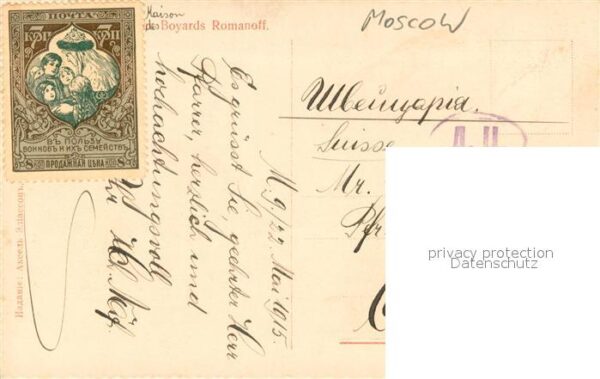 ПОЧТА
7 КОП КОП 7
ВЪ ПОЛЬЗУ
ВОИНОВЪ И ИХЪ СЕМЕЙСТВЪ
8 КОП ПРОДАЖНАЯ ЦѢНА КОП 8
Maison
des Boyards Romanoff.
MOSCOW
Швейцарія.
Suisse
Mr.
Pfr
M. 9/22 Mai 1915.
Es grüsst Sie, geehrter Herr
Pfarrer, herzlich und
hochachtungsvoll
Ihr
Изданіе: Аксель
privacy protection
Datenschutz